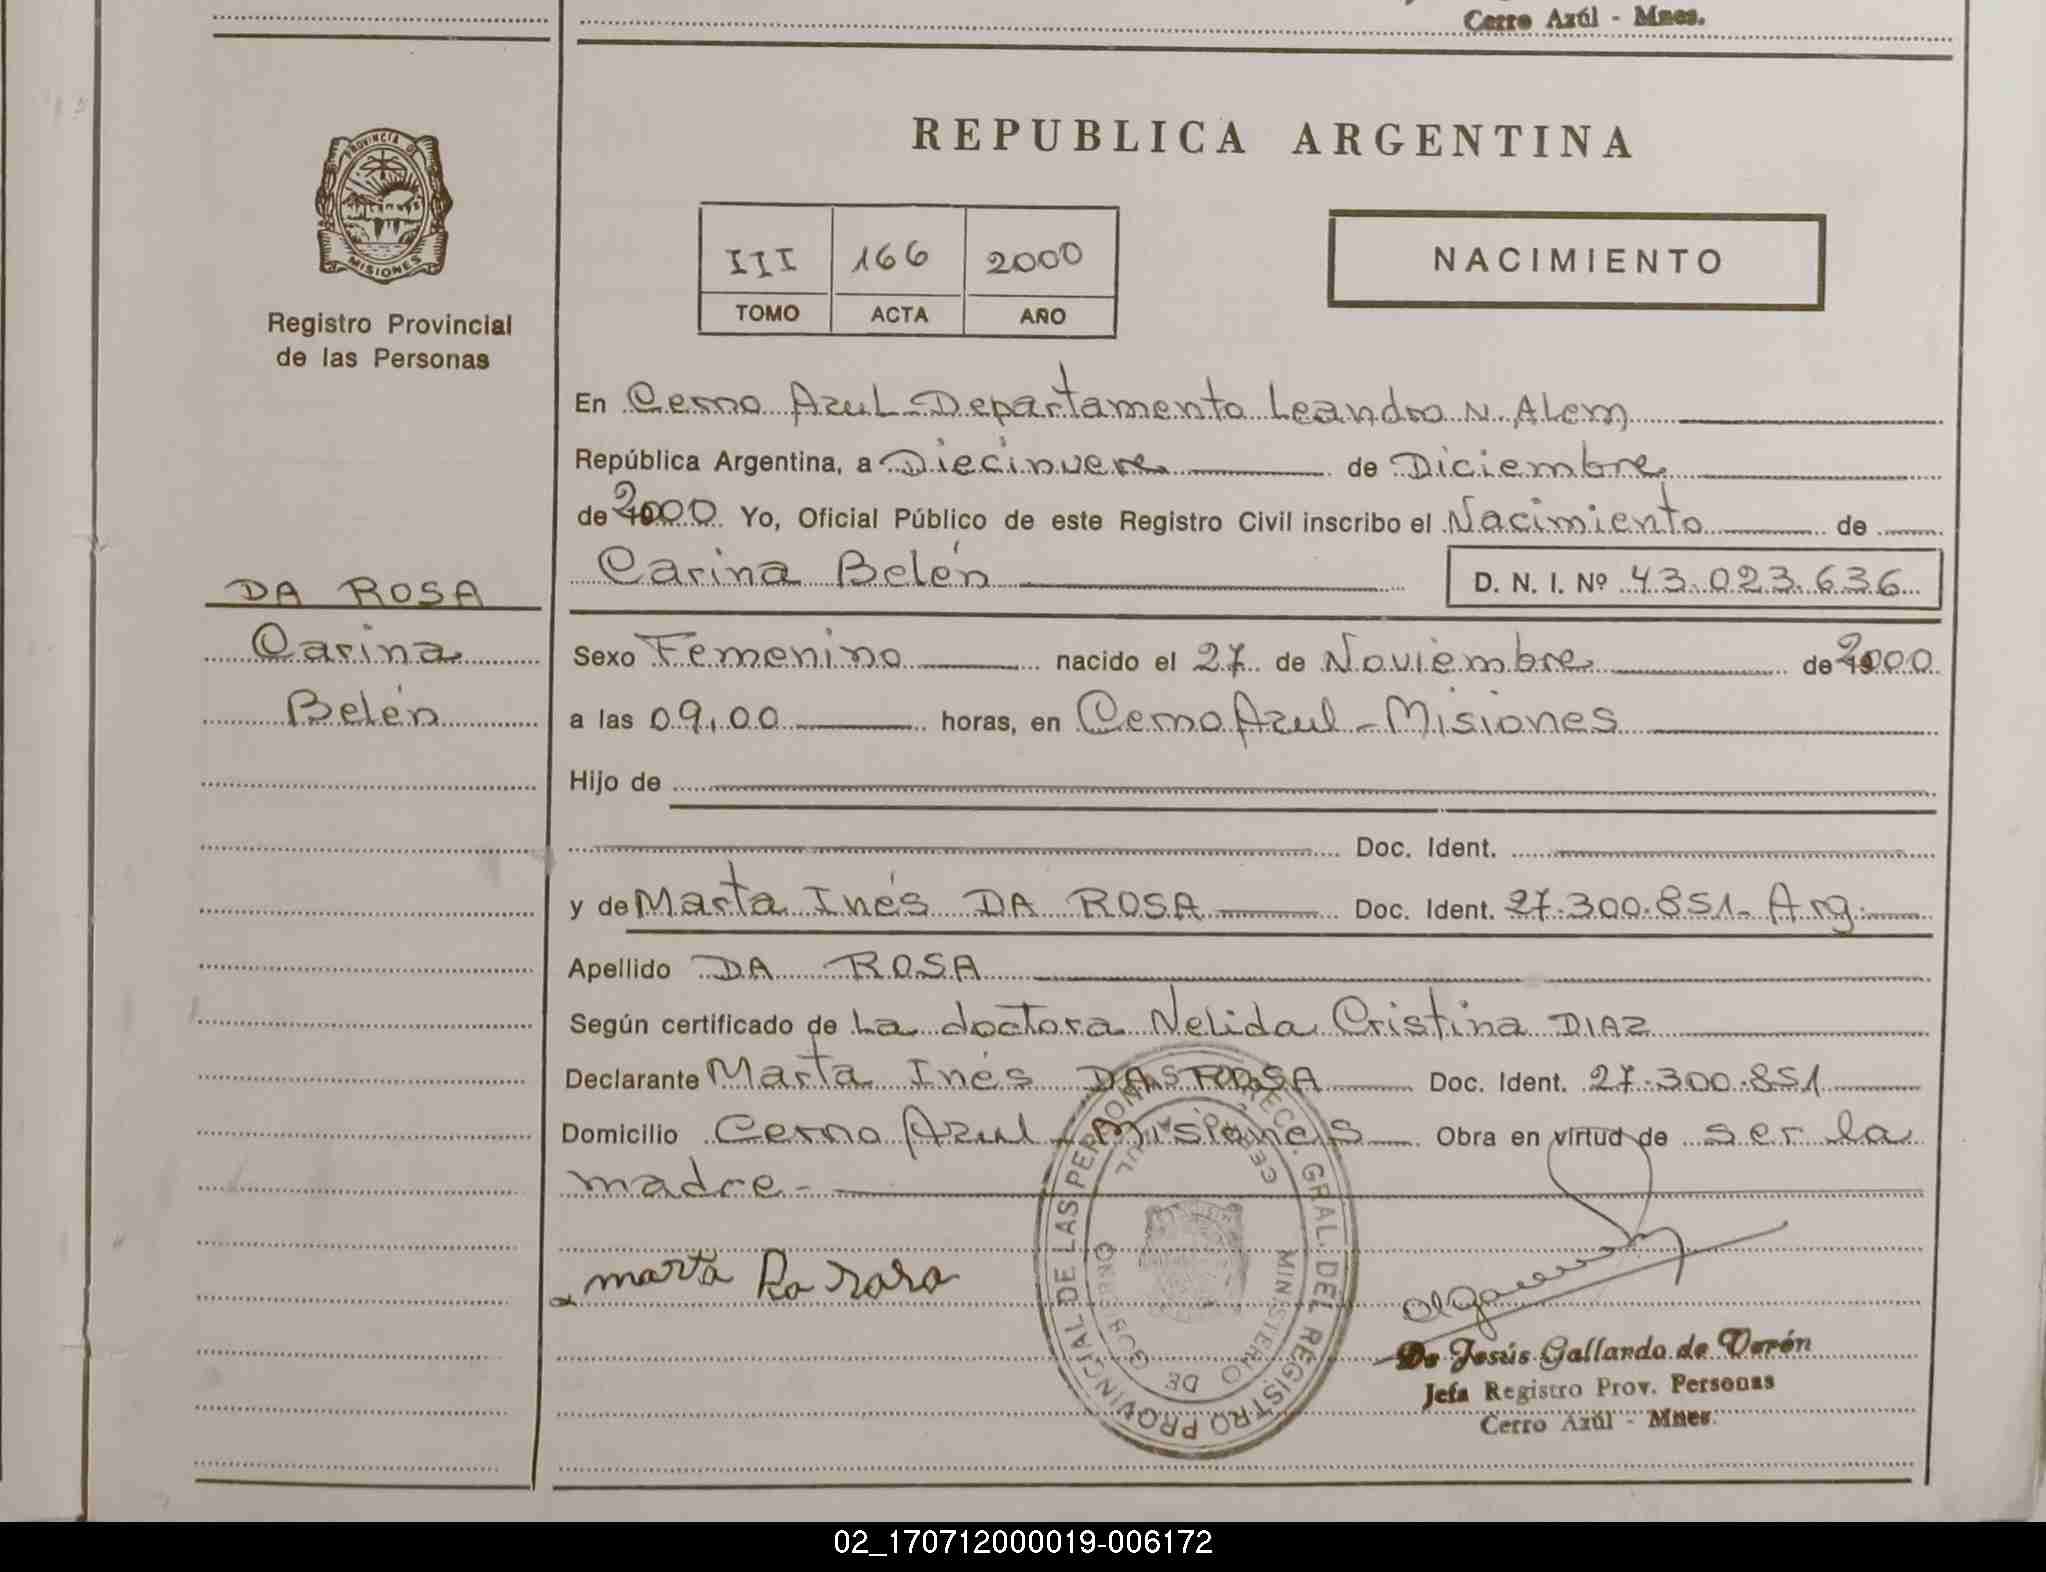 Cerro Azúl - Mnes.
PROVINCIA D
MISIONES
Registro Provincial
de las Personas
REPUBLICA ARGENTINA
III 166 2000
TOMO ACTA AÑO
NACIMIENTO
En Cerro Azul - Departamento Leandro N. Alem
República Argentina, a Diecinueve de Diciembre
de 2000 Yo, Oficial Público de este Registro Civil inscribo el Nacimiento de
Carina Belén D. N. I. Nº 43.023.636
DA ROSA
Carina
Belén
Sexo Femenino nacido el 27 de Noviembre de 2000
a las 09,00 horas, en Cerro Azul - Misiones
Hijo de
Doc. Ident.
y de Marta Inés DA ROSA Doc. Ident. 27.300.851- Arg.
Apellido DA ROSA
Según certificado de La doctora Nelida Cristina DIAZ
Declarante Marta Inés DA ROSA Doc. Ident. 27.300.851
Domicilio Cerro Azul - Misiones Obra en virtud de ser la
madre -
marta Da rosa
DIRECC. GRAL. DEL REGISTRO PROVINCIAL DE LAS PERSONAS
MINISTERIO DE GOBIERNO
CERRO AZUL
De Jesús Gallardo de Verón
Jefa Registro Prov. Personas
Cerro Azúl - Mnes.
02_170712000019-006172